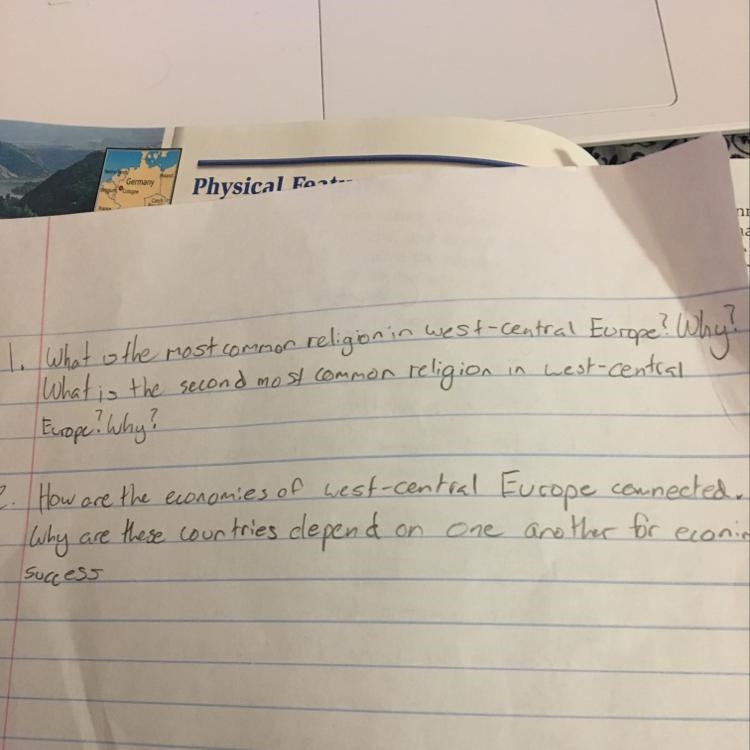 Germany
Cologne
Physical Feat
1. What is the most common religion in west-central Europe? Why?
What is the second most common religion in west-central
Europe? Why?
2. How are the economies of west-central Europe connected.
Why are these countries depend on one another for econim
success